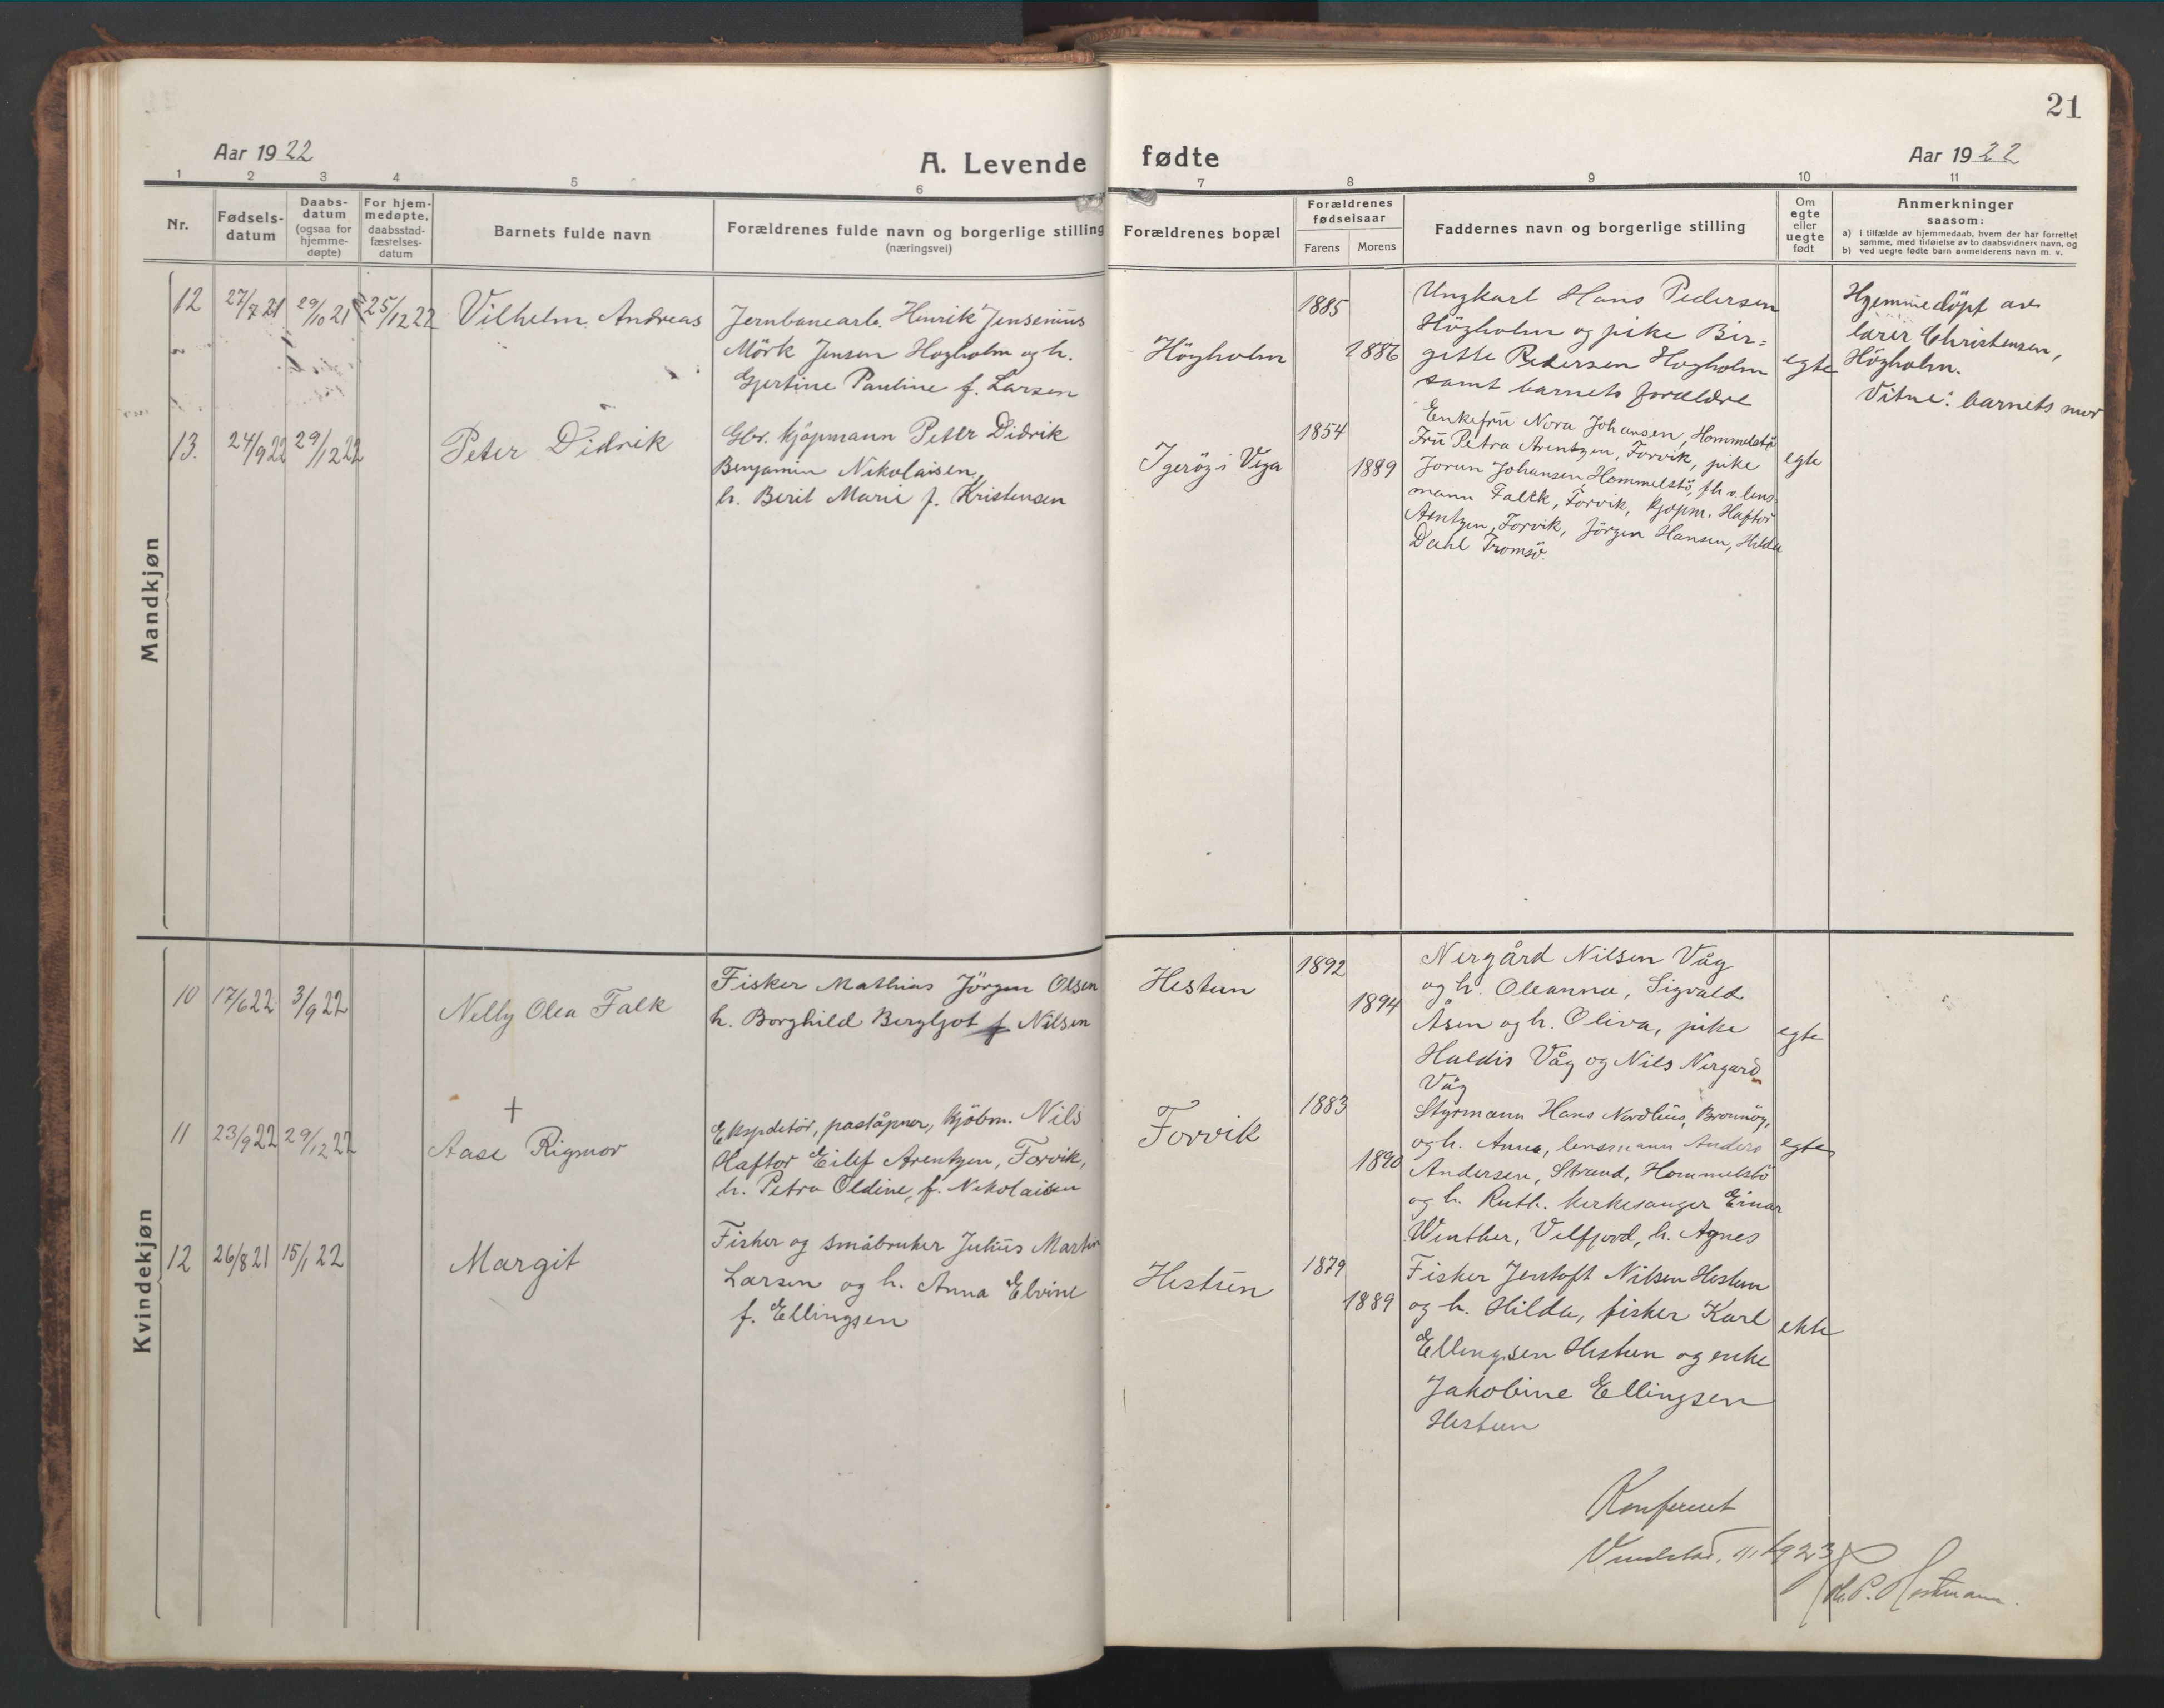 21
Aar 1922
A. Levende fødte
Aar 1922
1 2 3 4 5 6 7 8 9 10 11
Nr.
Fødsels-
datum
Daabs-
datum
(ogsaa for
hjemme-
døpte)
For hjem-
medøpte,
daabsstad-
fæstelses-
datum
Barnets fulde navn
Forældrenes fulde navn og borgerlige stilling
(næringsvei)
Forældrenes bopæl
Forældrenes
fødselsaar
Farens Morens
Faddernes navn og borgerlige stilling
Om
egte
eller
uegte
født
Anmerkninger
saasom:
a) i tilfælde av hjemmedaab, hvem der har forrettet
samme, med tilføielse av to daabsvidners navn, og
b) ved uegte fødte barn anmelderens navn m. v.
Mandkjøn
12 27/7 21 29/10 21 25/12 22 Vilhelm Andreas
Jernbanearb. Henrik Jensenius
Mörk Jensen Høgholm og h.
Gjertine Pauline f. Larsen
Höyholm
1885
1886
Ungkarl Hans Pedersen
Högholm og pike Bir=
gitte Pedersen Hogholm
samt barnets forældre
egte
Hjemmedöpt av
lærer Christensen,
Högholm.
Vitne: barnets mor
13. 24/9 22 29/12 22 Peter Didrik
Gbr. kjöpmann Peter Didrik
Benjamin Nikolaisen,
h. Berit Marie f. Kristensen
Igeröy i Vega
1854
1889
Enkefru Nora Johansen, Hommelstö
Fru Petra Arentzen, Forvik, pike
Jorun Johansen, Hommelstö, fh.v. lens=
mann Falck, Forvik, kjøpm. Haftor
Arntzen, Forvik, Jörgen Hansen, Hilda
Dahl Tromsö.
egte
Kvindekjøn
10 17/6 22 3/9 22 Nelly Olea Falk
Fisker Mathias Jörgen Olsen
h. Borghild Bergljot f Nilsen
Hestun
1892
1894
Nergård Nilsen Våg
og h. Oleanna, Sigvald
Åsen og h. Oliva, pike
Haldis Våg og Nils Nergård
Våg
egte
+
11 23/9 22 29/12 22 Aase Rigmor
Ekspditör, poståpner, kjöbm. Nils
Haftor Eilef Arentzen, Forvik,
h. Petra Oldine, f. Nikolaisen
Forvik
1883
1890
Styrmann Hans Nordhus, Bronnöy,
og h. Anna, lensmann Anders
Andersen, Strand, Hommelstö
og h. Ruth. kirkesanger Einar
Winther, Velfjord, h. Agnes
egte
12 26/8 21 15/1 22 Margit
Fisker og småbruker Julius Martin
Larsen og h. Anna Elvine
f. Ellingsen
Hestun
1879
1889
Fisker Jentoft Nilsen Hestun
og h. Hilda, fisker Karl
Ellingsen Hestun og enke
Jakobine Ellingsen
Hestun
ekte
Konferert
1923